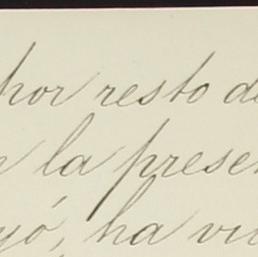 por resto d
la presen
yó, ha vi